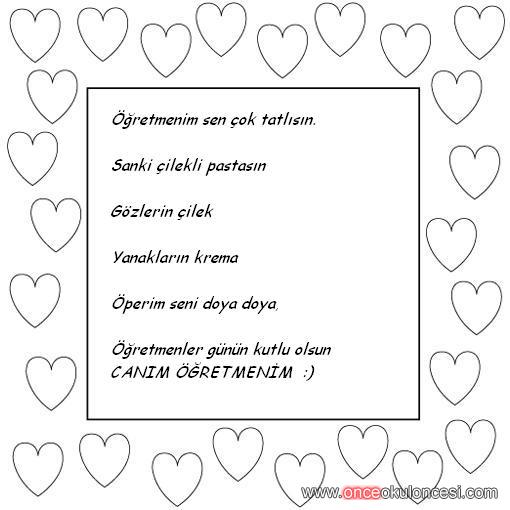 Öğretmenim sen çok tatlısın.
Sanki çilekli pastasın
Gözlerin çilek
Yanakların krema
Öperim seni doya doya,
Öğretmenler günün kutlu olsun
CANIM ÖĞRETMENİM :)
www.onceokuloncesi.com